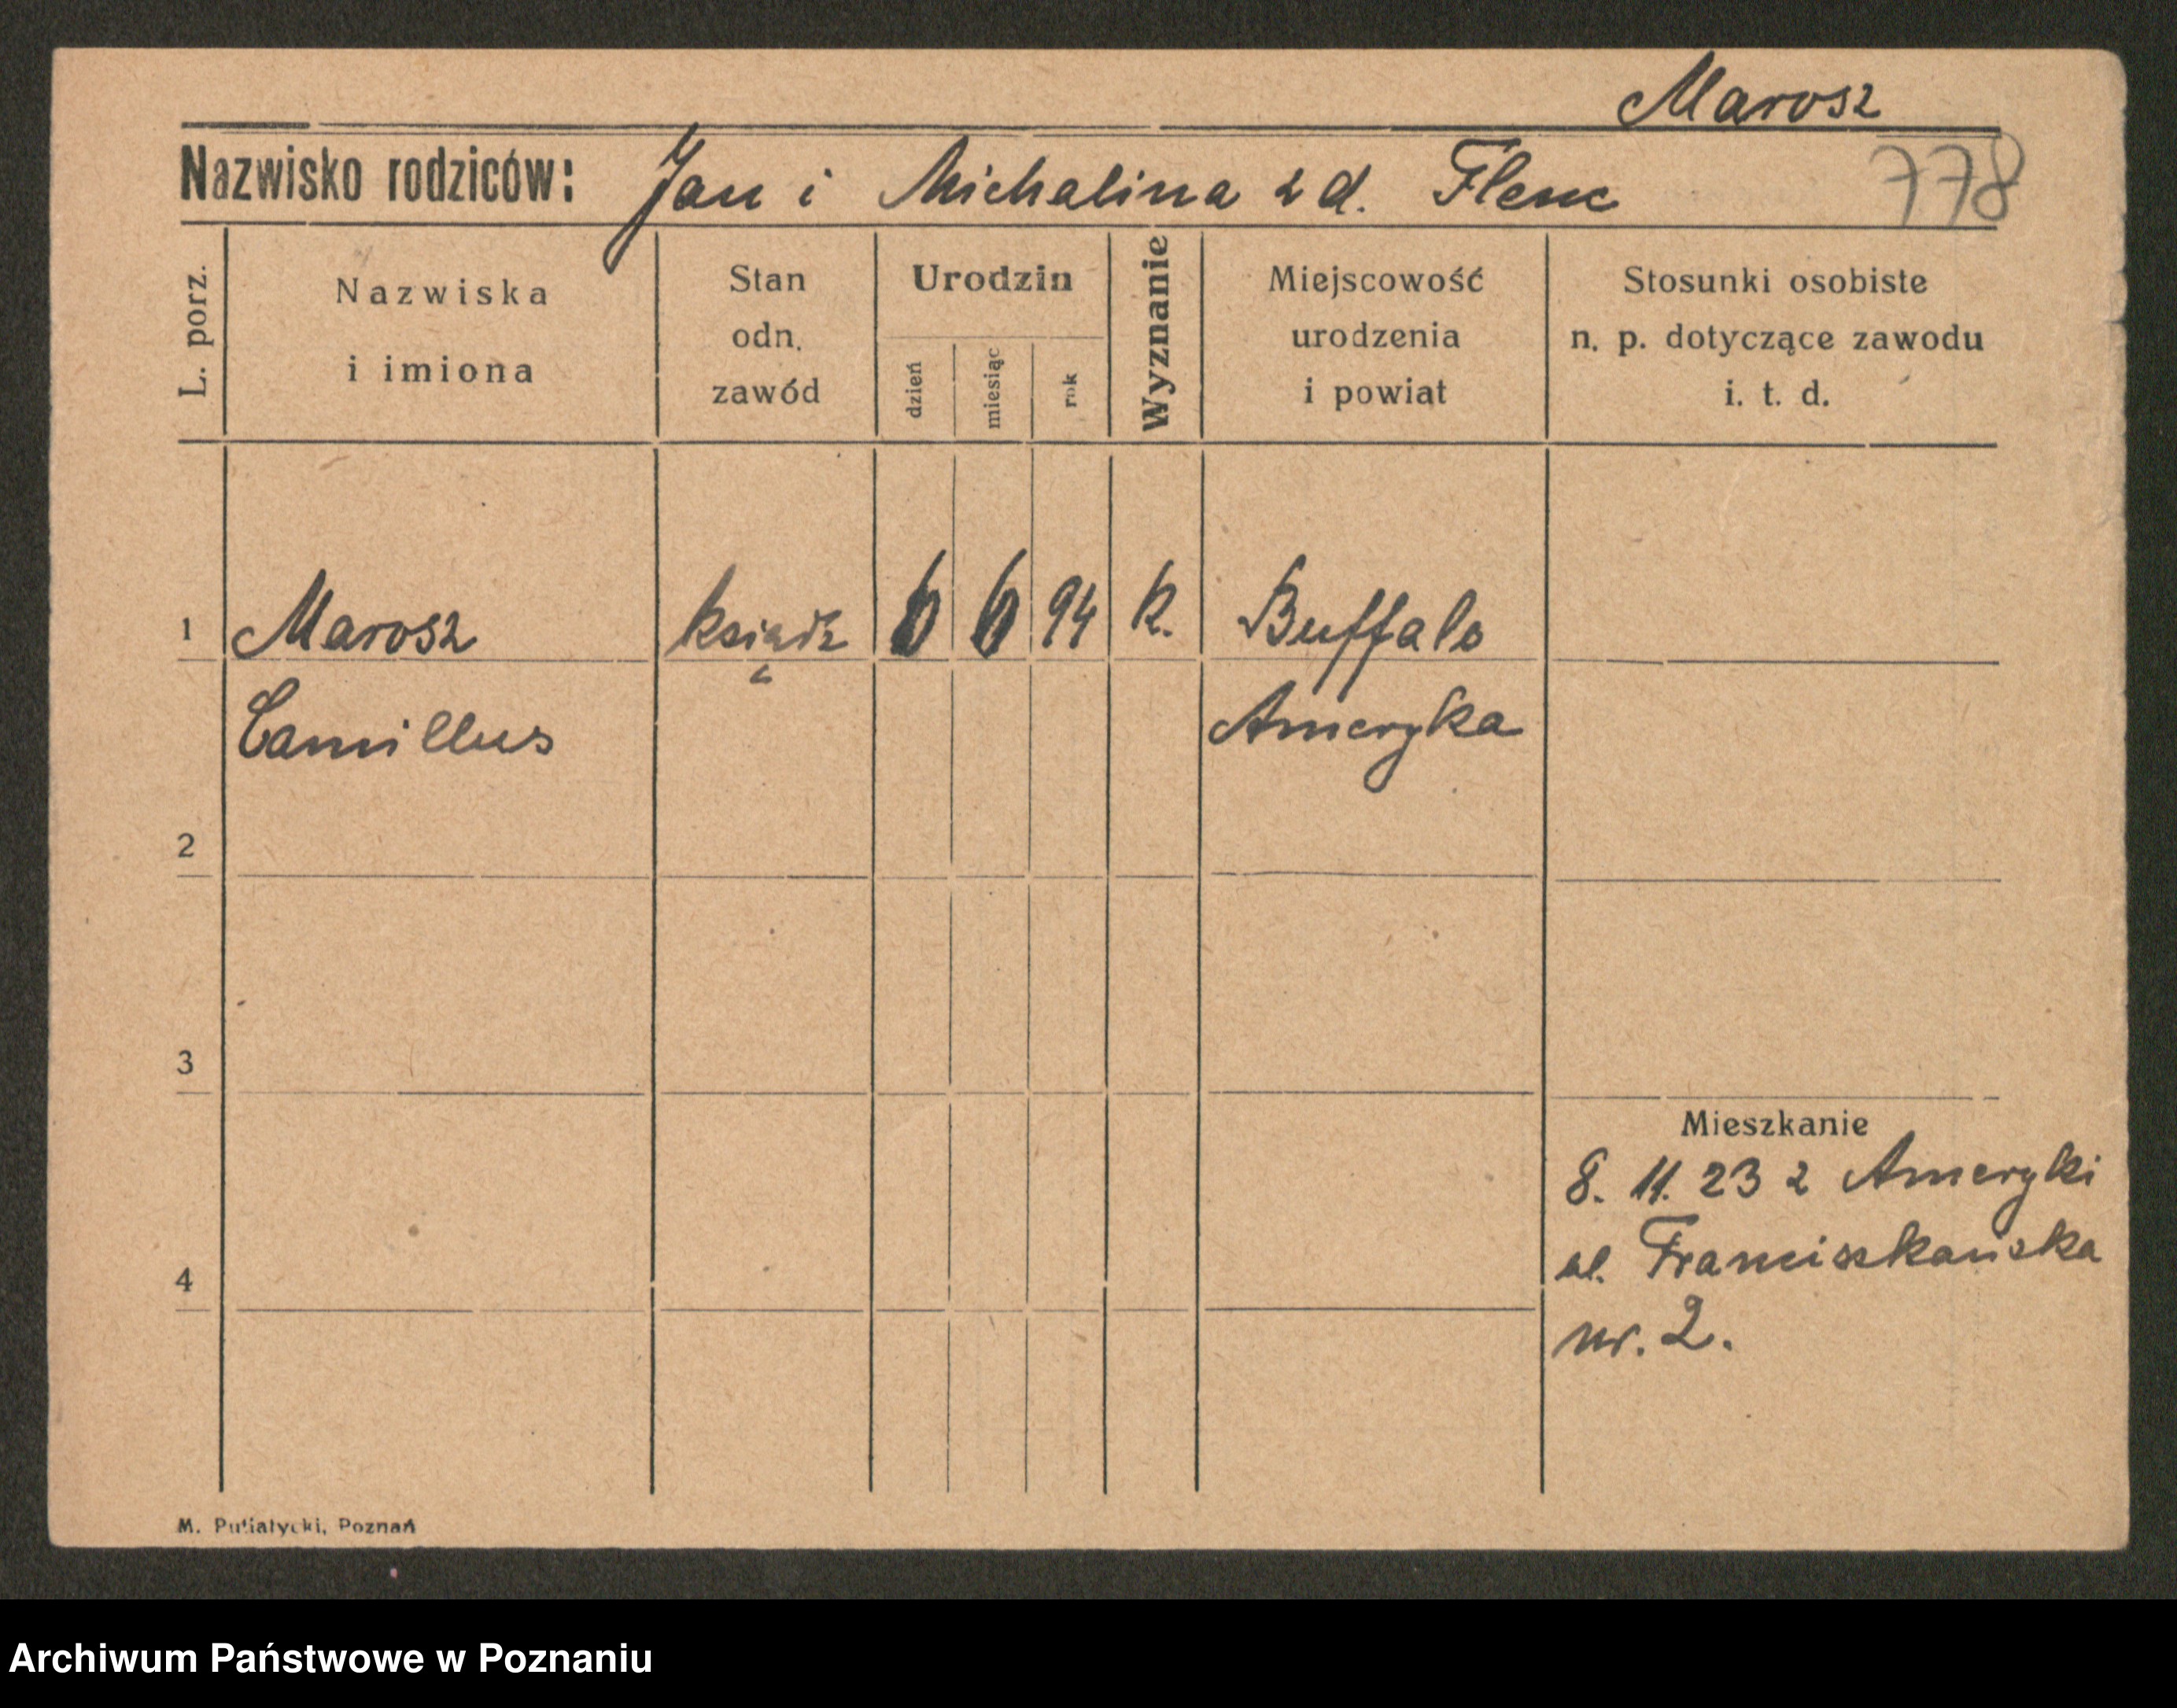 Marosz
Nazwisko rodziców: Jan i Michalina z d. Flenc
778
L. porz.
Nazwiska
i imiona
Stan
odn.
zawód
Urodzin
dzień
miesiąc
rok
Wyznanie
Miejscowość
urodzenia
i powiat
Stosunki osobiste
n. p. dotyczące zawodu
i. t. d.
1 Marosz ksiądz 6 6 94 k. Buffalo
Camillus Ameryka
2
3
Mieszkanie
8. 11. 23 z Ameryki
ul. Franciszkańska
4
nr. 2.
M. Putiatycki, Poznań
Archiwum Państwowe w Poznaniu